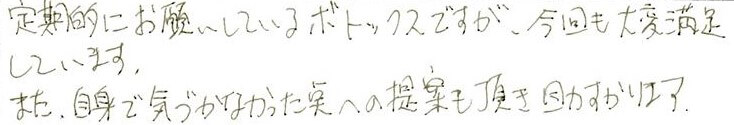 定期的にお願いしているボトックスですが、今回も大変満足
しています。
また、自身で気づかなかった点への提案も頂き助かります。